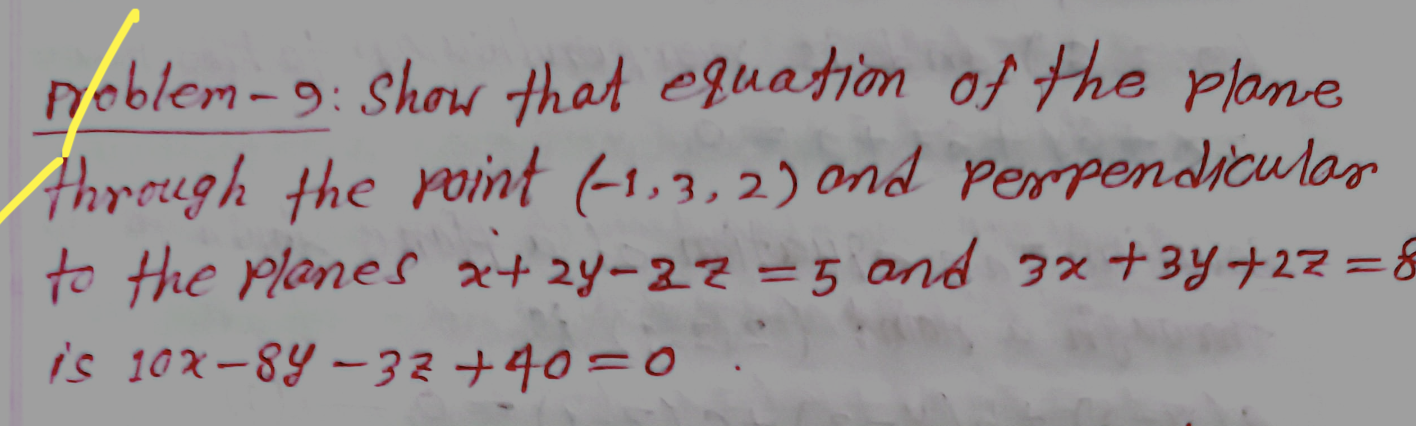 Problem-9: Show that equation of the plane
through the point (-1, 3, 2) and perpendicular
to the planes x+2y-2z=5 and 3x+3y+2z=8
is 10x-8y-3z+40=0.